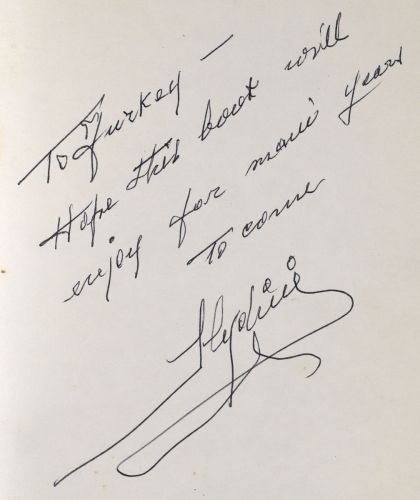 To Turkey —
Hope this book will
enjoy for mani years
To come
Slydini